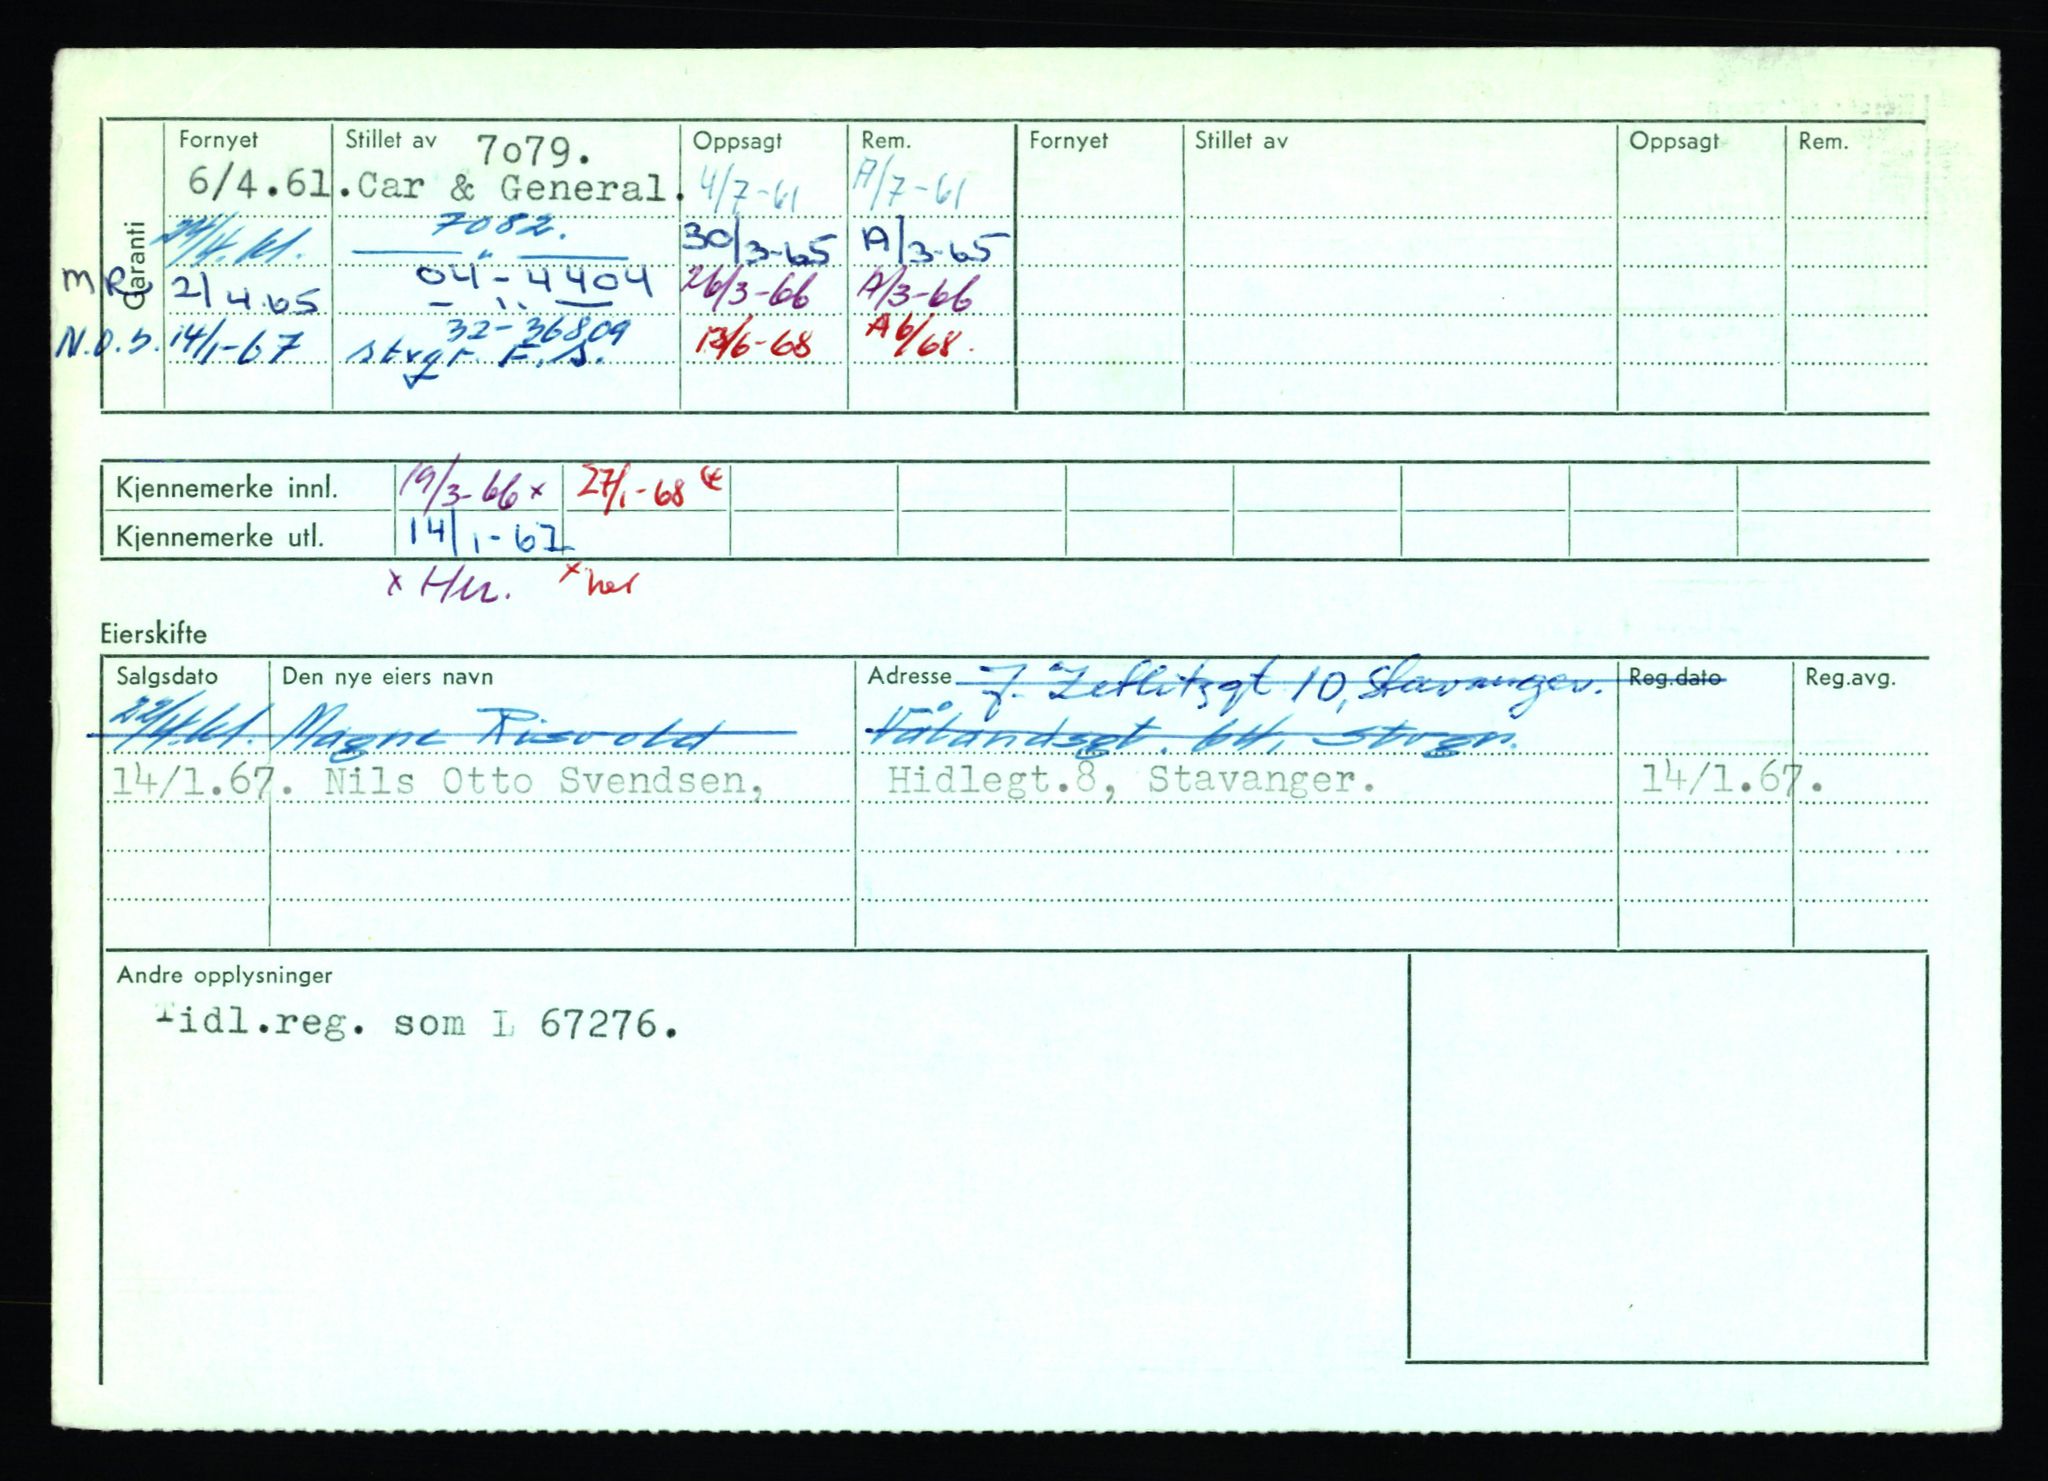 Garanti
Fornyet Stillet av 7079. Oppsagt Rem. Fornyet Stillet av Oppsagt Rem.
6/4.61. Car & General. 4/7-61 A/7-61
24/4.61. 7082. — " — 30/3-65 A/3-65
MR 21/4.65 04-4404 — " — 26/3-66 A/3-66
N.O.S. 14/1-67 32-36809 13/6-68 A 6/68.
Stvgr. F. S.
Kjennemerke innl. 19/3-66 x 27/1-68
Kjennemerke utl. 14/1-67
x x hel
Eierskifte
Salgsdato Den nye eiers navn Adresse J. Zetlitzgt 10, Stavanger. Reg.dato Reg.avg.
22/4.61. Magne Risvold Vålandsgt. 64, Stvgr.
14/1.67. Nils Otto Svendsen, Hidlegt.8, Stavanger. 14/1.67.
Andre opplysninger
Tidl.reg. som L 67276.